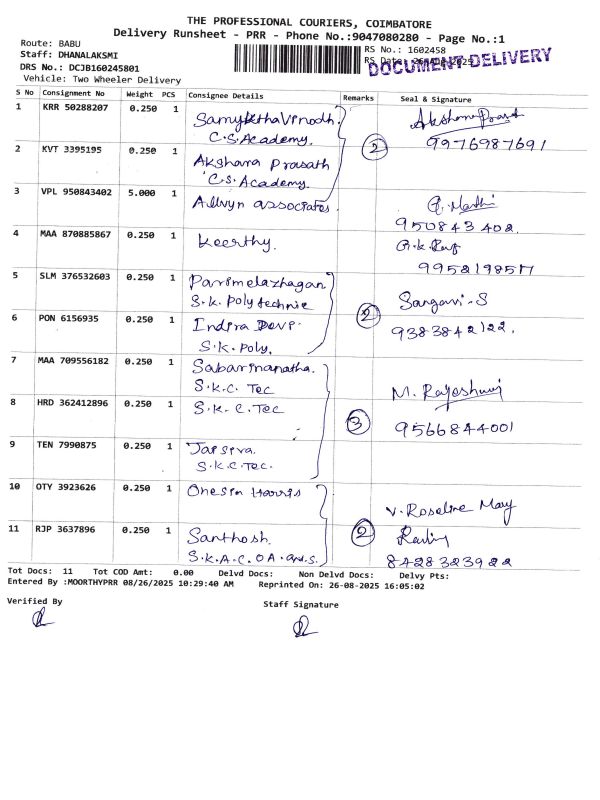 THE PROFESSIONAL COURIERS, COIMBATORE
Delivery Runsheet - PRR - Phone No.:9047080280 - Page No.:1
Route: BABU
Staff: DHANALAKSMI
RS No.: 1602458
DRS No.: DCJB160245801
RS Date:
DOCUMENT DELIVERY
Vehicle: Two Wheeler Delivery
S No Consignment No Weight PCS Consignee Details Remarks Seal & Signature
1 KRR 50288207 0.250 1 Samyuktha Vinodh,
C.S. Academy.
2
9976987691
2 KVT 3395195 0.250 1 Akshara Prasath
C.S. Academy.
3 VPL 950843402 5.000 1 Allwyn associates.
950843 402.
4 MAA 870885867 0.250 1 Keerthy.
9952198517
5 SLM 376532603 0.250 1 Parimelazhagan
S.K. Polytechnic
2
Sangavi-S
6 PON 6156935 0.250 1 Indira Devi.
S.K. Poly.
9383842122.
7 MAA 709556182 0.250 1 Sabarinanatha.
S.K.C. Tec
M. Rajeshwari
8 HRD 362412896 0.250 1 S.K.C. Tec
3
9566844001
9 TEN 7990875 0.250 1 Jaisiva.
S.K.C. Tec.
10 OTY 3923626 0.250 1 Onesin Harris
V. Roseline Mary
11 RJP 3637896 0.250 1 Santhosh.
S.K.A.C.OA.
2
8428323922
Tot Docs: 11 Tot COD Amt: 0.00 Delvd Docs: Non Delvd Docs: Delvy Pts:
Entered By :MOORTHYPRR 08/26/2025 10:29:40 AM Reprinted On: 26-08-2025 16:05:02
Verified By
Staff Signature